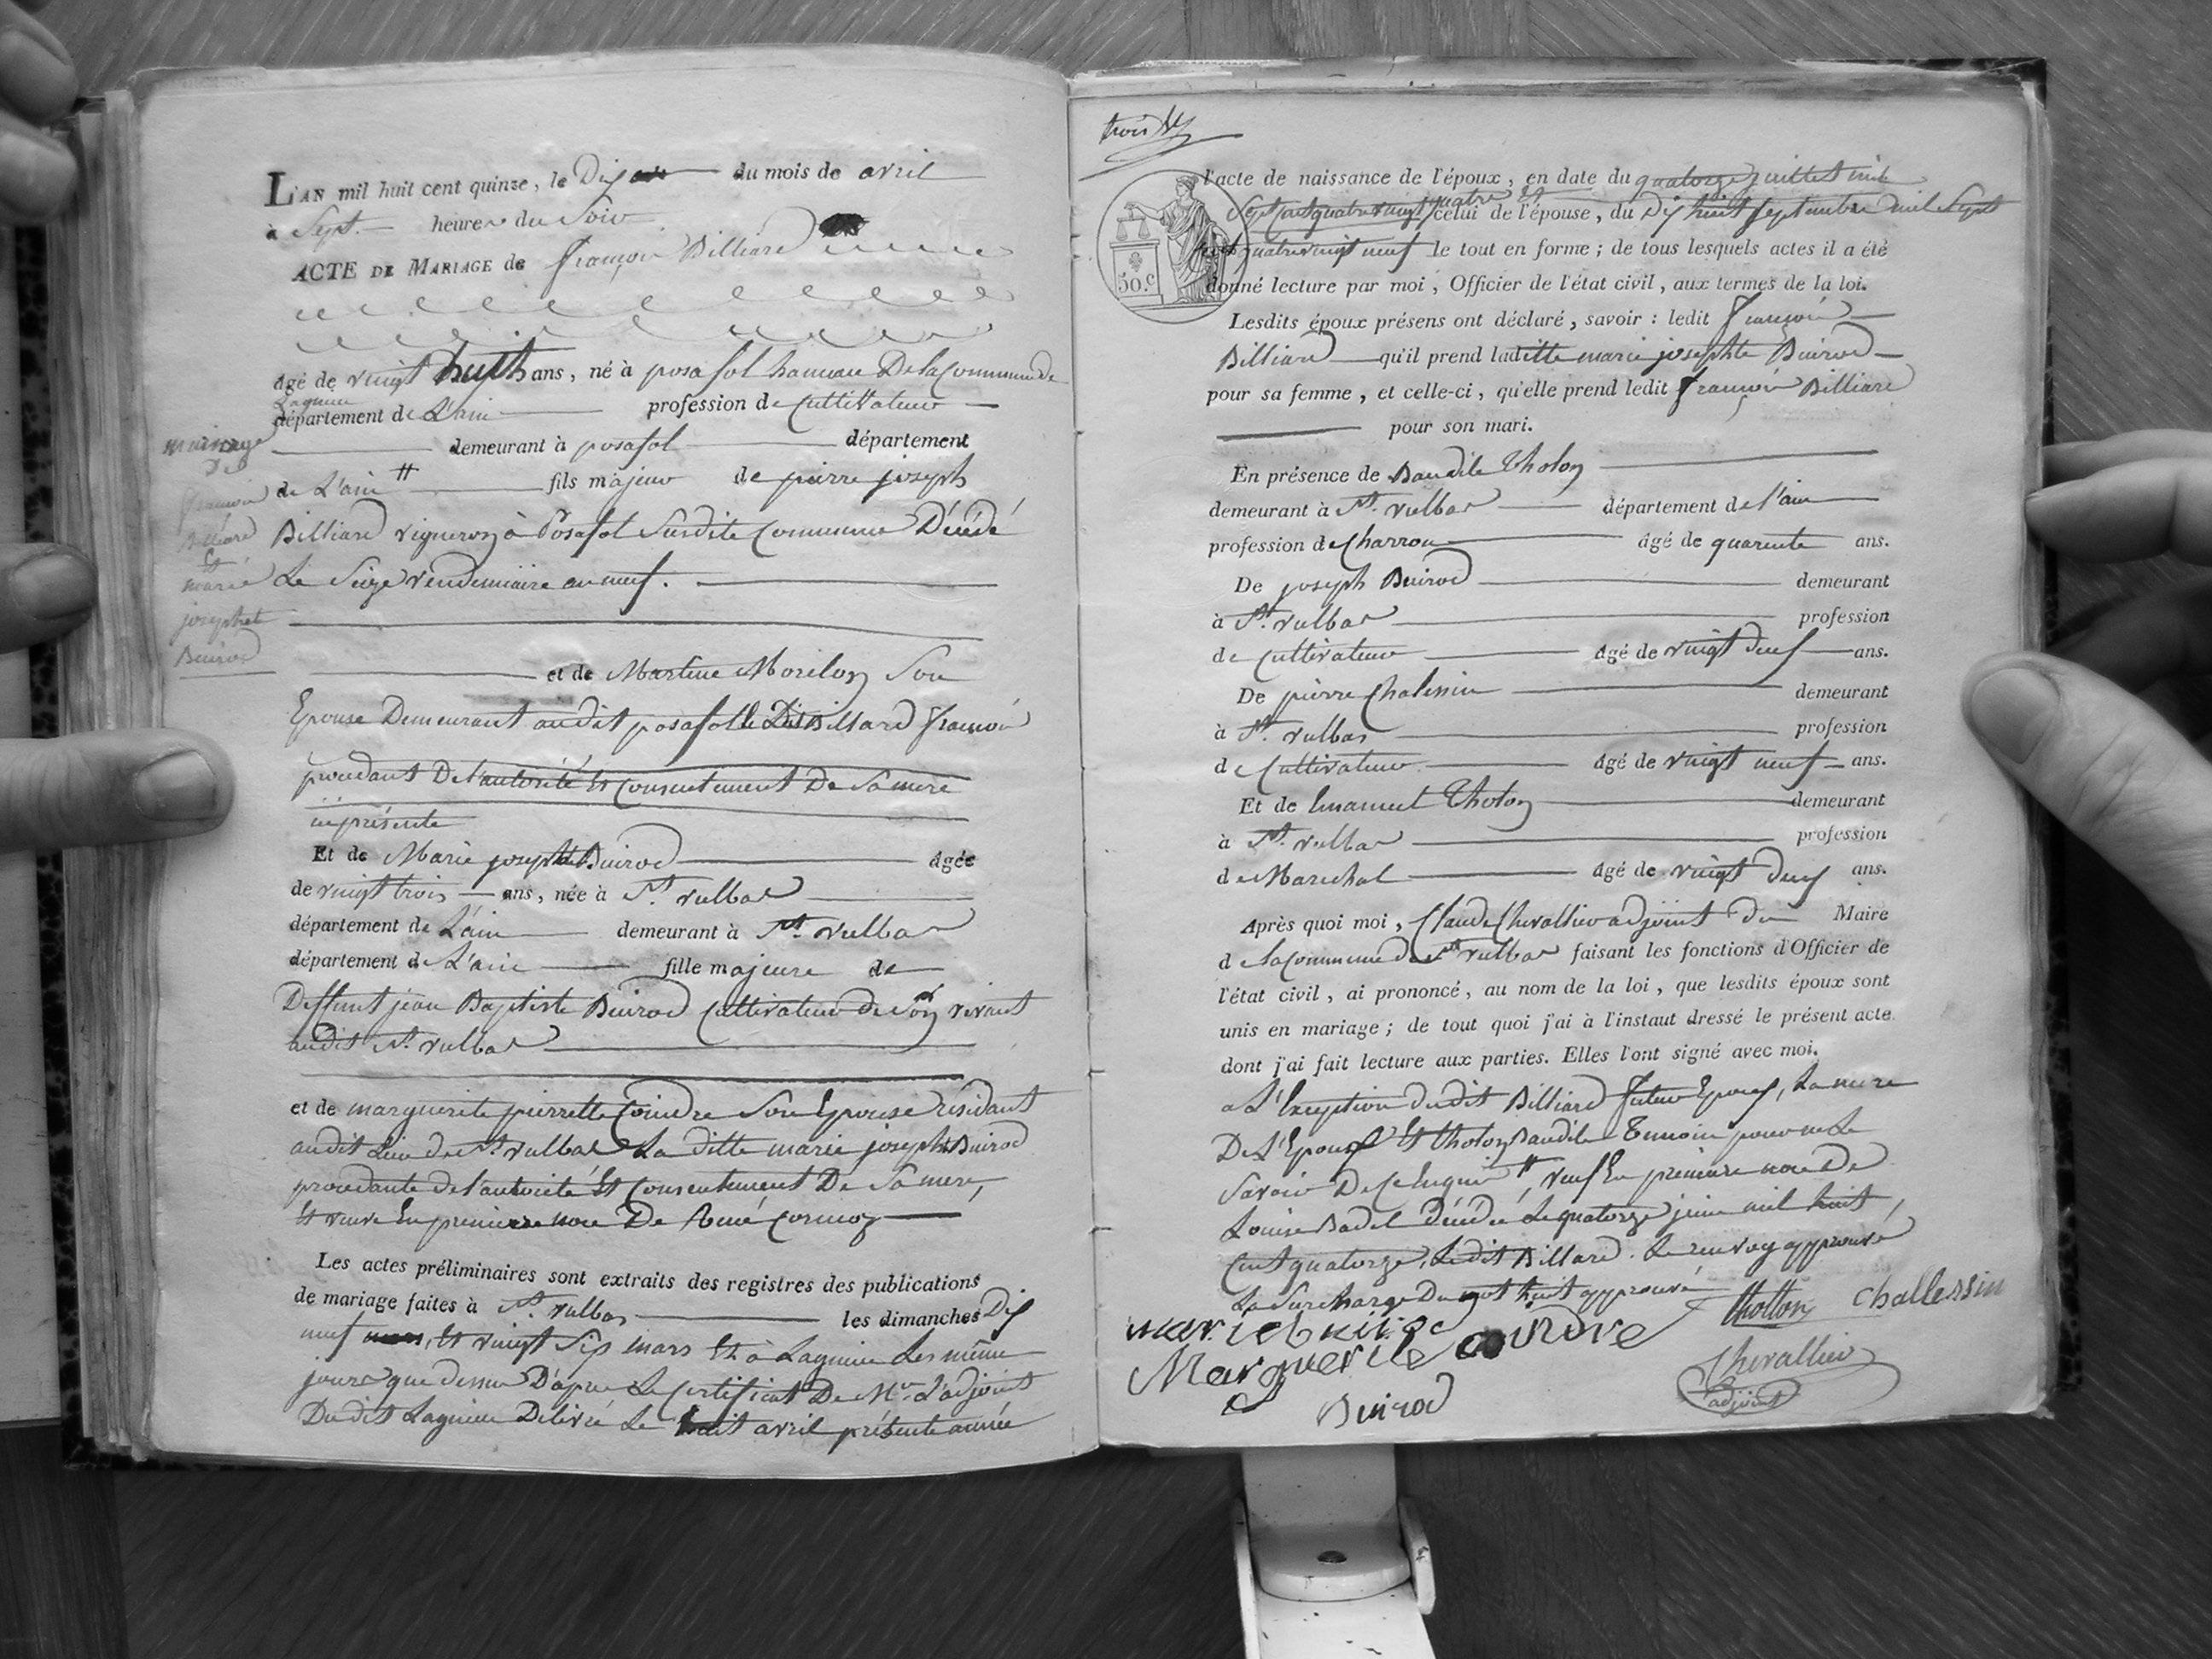 L'AN mil huit cent quinze, le Dix du mois de avril
à Sept heures du Soir
ACTE DE MARIAGE de françois Billiard
agé de vingt huit ans, né à posafol hameau De la Commune de
Lagnieu
département de L'ain profession de Cultivateur
demeurant à posafol département
de L'ain # fils majeur de pierre joseph
Billiard vigneron à Posafol Susdite Commune Décédé
Le Seize vendemiaire an neuf.
mariage
De
françois
Billiard
Et
marie
josephte
Buirod
et de Martine Morilon Son
Epouse Demeurant audit posafol le Dit Billard françois
procedant De l'autorité Et Consentement De Sa mere
ici présente
Et de Marie josephte Buirod agée
de vingt trois ans, née à St. vulbas
département de L'ain demeurant à St. vulbas
département de L'ain fille majeure de
Deffunt jean Baptiste Buirod Cultivateur de Son vivant
audit St. vulbas
et de marguerite pierrette Coindre Son Epouse résidant
audit Lieu de St. vulbas La ditte marie josephte Buirod
procedante de l'autorité Et Consentement De Sa mere,
Et veuve En premiere noce De Aimé
Les actes préliminaires sont extraits des registres des publications
de mariage faites à St. vulbas les dimanches Dix
neuf Et vingt Six mars Et à Lagnieu Les même
jours que dessus D'apres Le Certificat De Mr. L'adjoint
Du dit Lagnieu Delivré Le huit avril présente année
l'acte de naissance de l'époux, en date du quatorze juillet mil
Sept cent quatre vingt quatre Et celui de l'épouse, du Dix huit Septembre mil Sept
cent quatre vingt neuf le tout en forme; de tous lesquels actes il a été
donné lecture par moi, Officier de l'état civil, aux termes de la loi.
50.c
Lesdits époux présens ont déclaré, savoir: ledit françois
Billiard qu'il prend laditte marie josephte Buirod
pour sa femme, et celle-ci, qu'elle prend ledit françois Billiard
pour son mari.
En présence de Baudile Tholon
demeurant à St. vulbas département de l'ain
profession de Charron agé de quarente ans.
De joseph Buirod demeurant
à St. vulbas profession
de Cultivateur agé de vingt deux ans.
De pierre Chalessin demeurant
à St. vulbas profession
de Cultivateur agé de vingt neuf ans.
Et de Emanuel Tholon demeurant
à St. vulbas profession
de Marechal agé de vingt deux ans.
Après quoi moi, Claude Chevallier adjoint du Maire
de la Commune de St. vulbas faisant les fonctions d'Officier de
l'état civil, ai prononcé, au nom de la loi, que lesdits époux sont
unis en mariage; de tout quoi j'ai à l'instaut dressé le présent acte
dont j'ai fait lecture aux parties. Elles l'ont signé avec moi.
a L'Exception dudit Billiard futur Epoux, La mere
De L'Epoux Et tholon Baudile Temoin pour ne Le
Savoir De Ce Enquis # veuf En premiere noce De
Louise Badel Décédée Le quatorze juin mil huit
Cent quatorze, Ledit Billard. Le renvoy approuvé
La Surcharge Du mot huit approuvé
tholton Challessin
Marguerite coindre
Chevallier
Buirod
adjoint